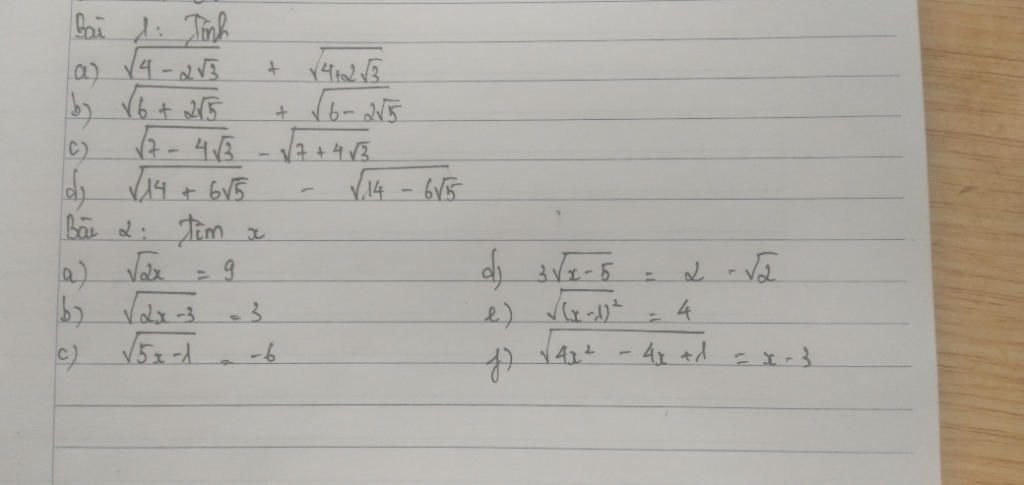 Bài 1: Tính
a) √(4 - 2√3) + √(4+2√3)
b) √(6 + 2√5) + √(6 - 2√5)
c) √(7 - 4√3) - √(7 + 4√3)
d) √(14 + 6√5) - √(14 - 6√5)
Bài 2: Tìm x
a) √2x = 9
b) √(2x-3) = 3
c) √(5x-1) = -6
d) 3√(x-5) = 2 - √2
e) √((x-1)²) = 4
f) √(4x² - 4x + 1) = x - 3